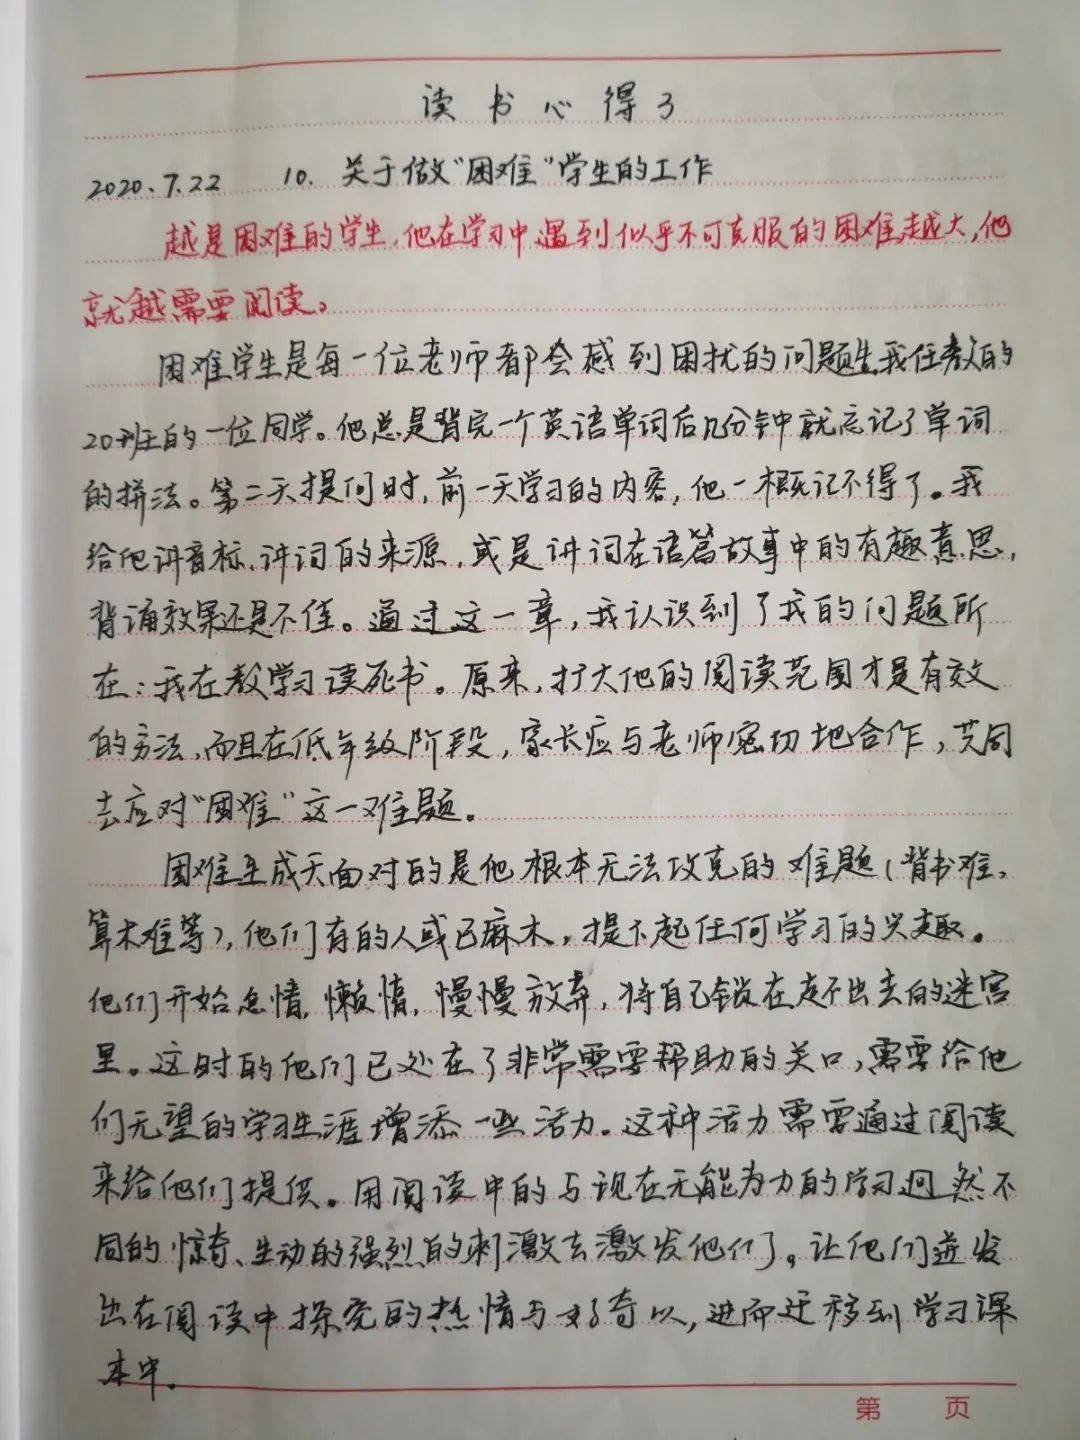 读书心得3
2020.7.22 10. 关于做“困难”学生的工作
越是困难的学生,他在学习中遇到似乎不可克服的困难越大,他
就越需要阅读。
困难学生是每一位老师都会感到困扰的问题生,我任教的
20班的一位同学。他总是背完一个英语单词后几分钟就忘记了单词
的拼法。第二天提问时,前一天学习的内容,他一概记不得了。我
给他讲音标、讲词的来源,或是讲词在语篇故事中的有趣意思,
背诵效果还是不佳。通过这一章,我认识到了我的问题所
在:我在教学习读死书。原来,扩大他的阅读范围才是有效
的方法,而且在低年级阶段,家长应与老师密切地合作,共同
去应对“困难”这一难题。
困难生成天面对的是他根本无法攻克的难题(背书难,
算术难等),他们有的人或已麻木,提不起任何学习的兴趣。
他们开始怠惰,懒惰,慢慢放弃,将自己锁在走不出去的迷宫
里。这时的他们已处在了非常需要帮助的关口,需要给他
们无望的学习生涯增添一些活力。这种活力需要通过阅读
来给他们提供。用阅读中的与现在无能为力的学习迥然不
同的惊奇、生动的强烈的刺激去激发他们了。让他们迸发
出在阅读中探究的热情与好奇以,进而迁移到学习课
本中。
第 页